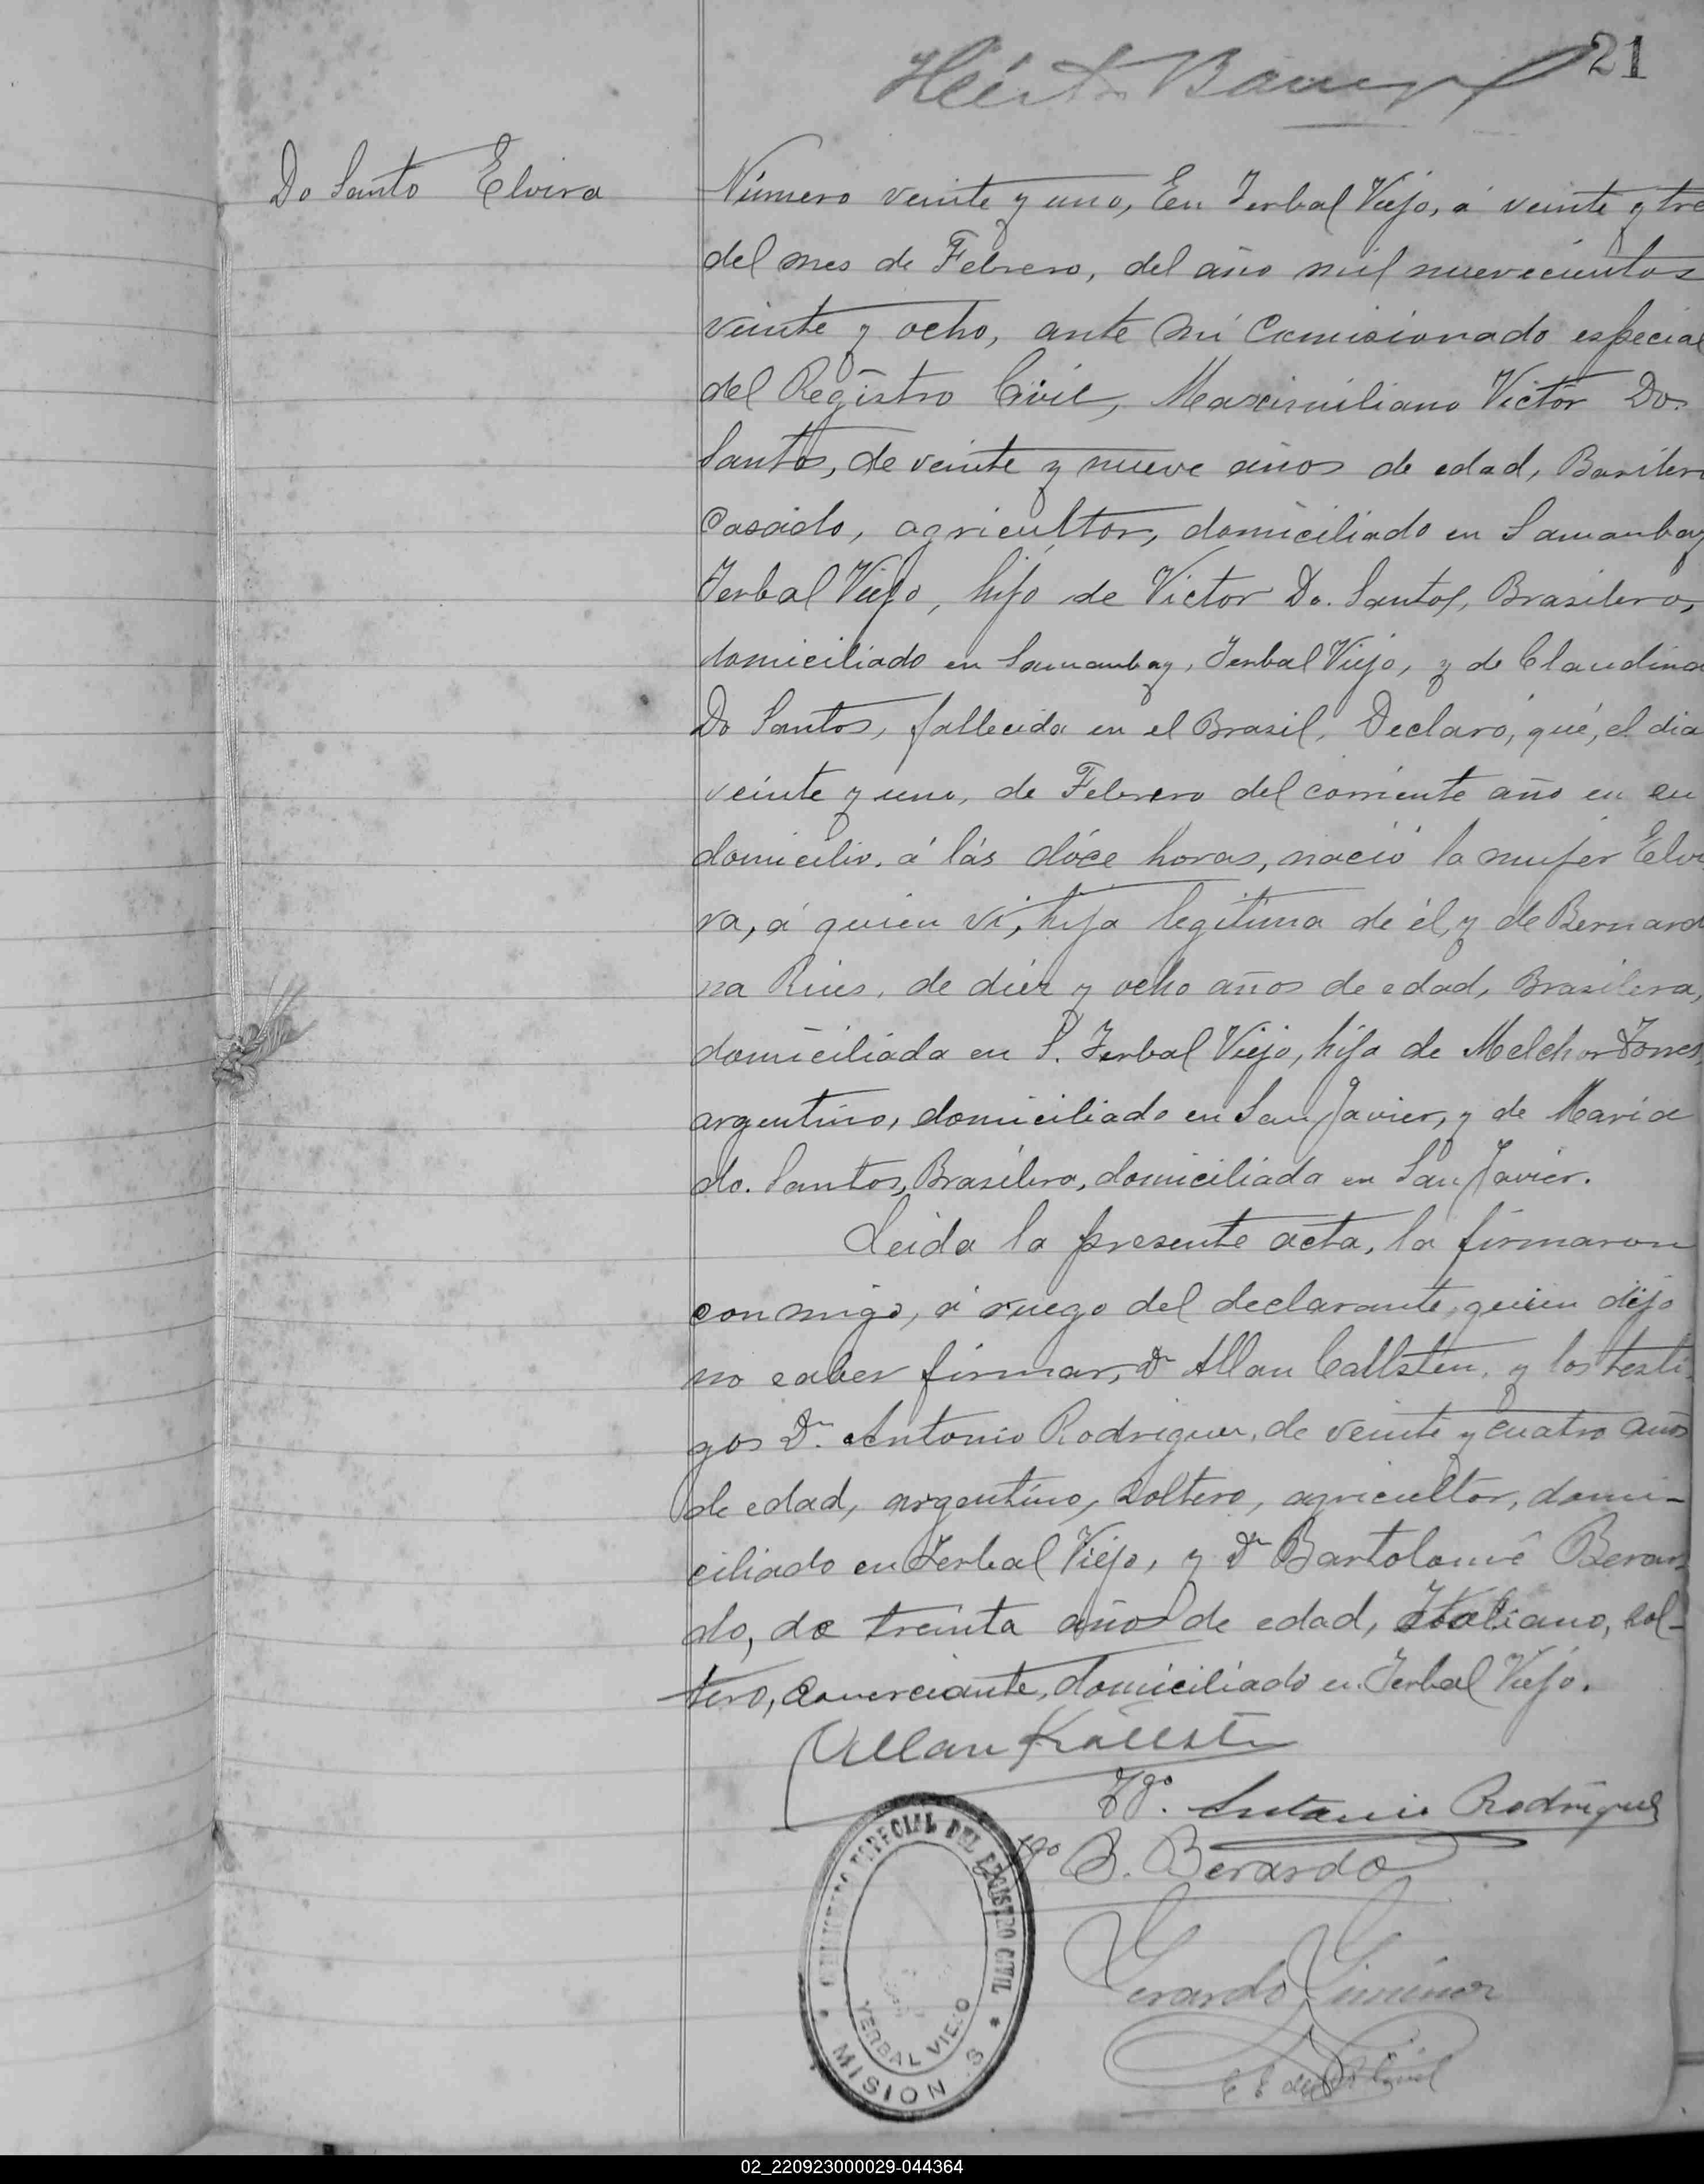 21
Do Santo Elvira
Número veinte y uno, En Yerbal Viejo, á veinte y tre
del mes de Febrero, del año mil nuevecientos
veinte y ocho, ante mí Comisionado especial
del Registro Civil, Maximiliano Victor Do.
Santos, de veinte y nueve años de edad, Barilero
Casado, agricultor, domiciliado en Samanbay
Yerbal Viejo, hijo de Victor Do. Santos, Brasilero,
domiciliado en Samanbay, Yerbal Viejo, y de Claudina
Do Santos, fallecida en el Brasil, Declaró, qué, el dia
veinte y uno, de Febrero del corriente año en su
domicilio, á lás dóce horas, nació la mujer Elvi
ra, á quien ví, hija legitima de él, y de Bernard
na, de diez y ocho años de edad, Brasilera,
domiciliada en S. Yerbal Viejo, hija de Melchor Torres,
argentino, domiciliado en San Javier, y de María
do. Santos, Brasilera, domiciliada en San Javier.
Leida la presente acta, la firmaron
conmigo, á ruego del declarante, quien dijo
no saber firmar, Dn Allan Callsten, y los testi
gos Dn. Antonio Rodriguez, de veinte y cuatro años
de edad, argentino, soltero, agricultor, domi-
ciliado en Yerbal Viejo, y Dn Bartolomé Berar
do, de treinta años de edad, Italiano, sol-
tero, comerciante, domiciliado en Yerbal Viejo.
Allan Källstn
Tgo. Antonio Rodriguez
tgo B. Berardo
Gerardo Giménez
ESPECIAL DEL REGISTRO CIVIL
YERBAL VIEJO
MISION S
02_220923000029-044364